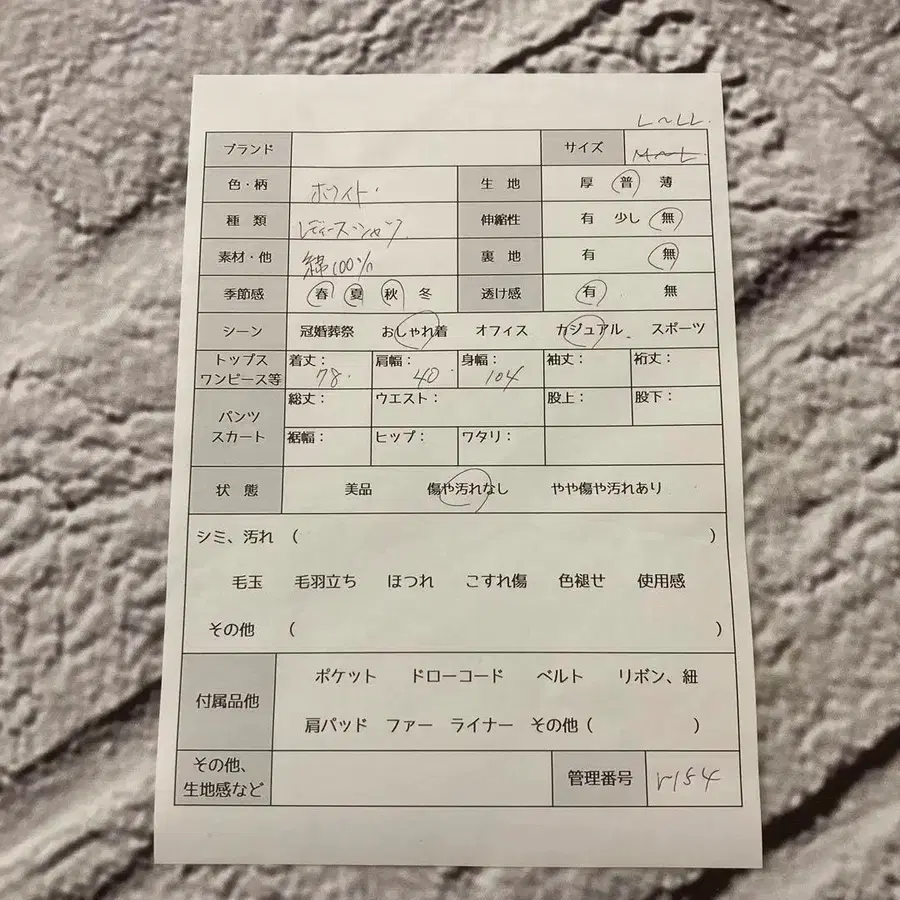 L～LL.
ブランド サイズ M～L.
色・柄 ホワイト. 生地 厚 普 薄
種類 レディースシャツ. 伸縮性 有 少し 無
素材・他 綿100% 裏地 有 無
季節感 春 夏 秋 冬 透け感 有 無
シーン 冠婚葬祭 おしゃれ着 オフィス カジュアル スポーツ
トップス 着丈： 肩幅： 身幅： 袖丈： 裄丈：
ワンピース等 78. 40. 104
総丈： ウエスト： 股上： 股下：
パンツ
スカート 裾幅： ヒップ： ワタリ：
状態 美品 傷や汚れなし やや傷や汚れあり
シミ、汚れ ( )
毛玉 毛羽立ち ほつれ こすれ傷 色褪せ 使用感
その他 ( )
ポケット ドローコード ベルト リボン、紐
付属品他
肩パッド ファー ライナー その他 ( )
その他、
生地感など 管理番号 r154